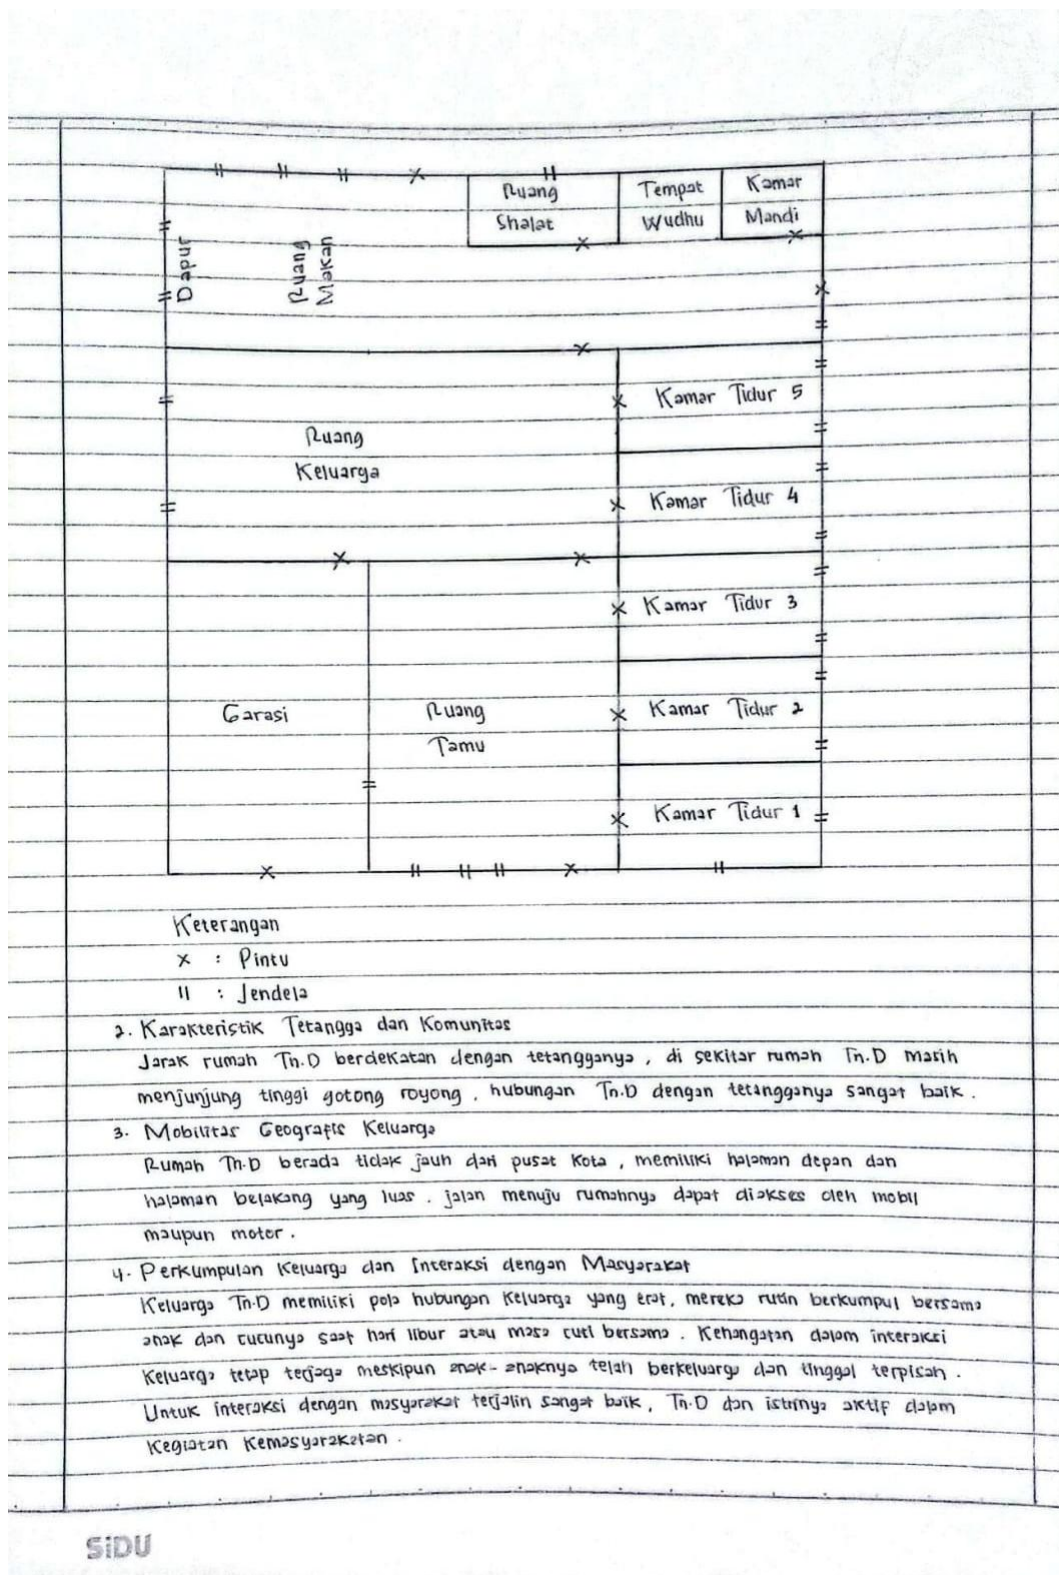 Ruang
Shalat
Tempat
Wudhu
Kamar
Mandi
Dapur
Ruang
Makan
Kamar Tidur 5
Ruang
Keluarga
Kamar Tidur 4
Kamar Tidur 3
Garasi
Ruang
Tamu
Kamar Tidur 2
Kamar Tidur 1
Keterangan
x : Pintu
II : Jendela
2. Karakteristik Tetangga dan Komunitas
Jarak rumah Tn.D berdekatan dengan tetangganya, di sekitar rumah Tn.D masih
menjunjung tinggi gotong royong, hubungan Tn.D dengan tetangganya sangat baik.
3. Mobilitas Geografis Keluarga
Rumah Tn.D berada tidak jauh dari pusat kota, memiliki halaman depan dan
halaman belakang yang luas. jalan menuju rumahnya dapat diakses oleh mobil
maupun motor.
4. Perkumpulan Keluarga dan Interaksi dengan Masyarakat
Keluarga Tn.D memiliki pola hubungan keluarga yang erat, mereka rutin berkumpul bersama
anak dan cucunya saat hari libur atau masa cuti bersama. Kehangatan dalam interaksi
keluarga tetap terjaga meskipun anak-anaknya telah berkeluarga dan tinggal terpisah.
Untuk interaksi dengan masyarakat terjalin sangat baik, Tn.D dan istrinya aktif dalam
kegiatan kemasyarakatan.
SiDU